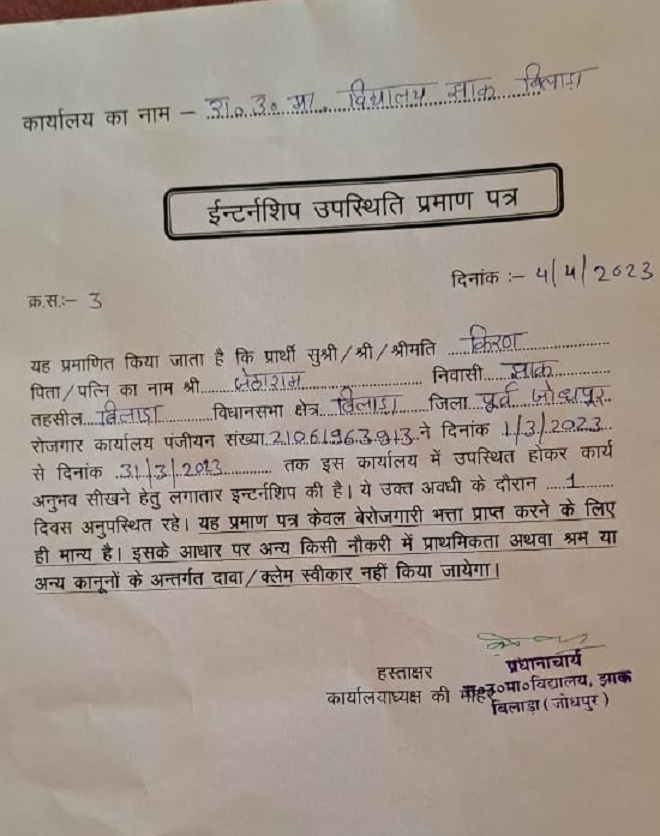 कार्यालय का नाम – रा.उ.मा. विद्यालय झाक बिलाड़ा
ईन्टर्नशिप उपस्थिति प्रमाण पत्र
दिनांक :– 4/4/2023
क्र.स:– 3
यह प्रमाणित किया जाता है कि प्रार्थी सुश्री/श्री/श्रीमति किरण
पिता/पत्नि का नाम श्री निवासी झाक
तहसील बिलाड़ा विधानसभा क्षेत्र बिलाड़ा जिला पूर्व जोधपुर
रोजगार कार्यालय पंजीयन संख्या 21061963913 ने दिनांक 1/3/2023
से दिनांक 31/3/2023 तक इस कार्यालय में उपस्थित होकर कार्य
अनुभव सीखने हेतु लगातार इन्टर्नशिप की है। ये उक्त अवधी के दौरान 1
दिवस अनुपस्थित रहे। यह प्रमाण पत्र केवल बेरोजगारी भत्ता प्राप्त करने के लिए
ही मान्य है। इसके आधार पर अन्य किसी नौकरी में प्राथमिकता अथवा श्रम या
अन्य कानूनों के अन्तर्गत दावा/क्लेम स्वीकार नहीं किया जायेगा।
हस्ताक्षर
प्रधानाचार्य
कार्यालयाध्यक्ष की मोहर
रा०उ०मा०विद्यालय, झाक
बिलाड़ा (जोधपुर)